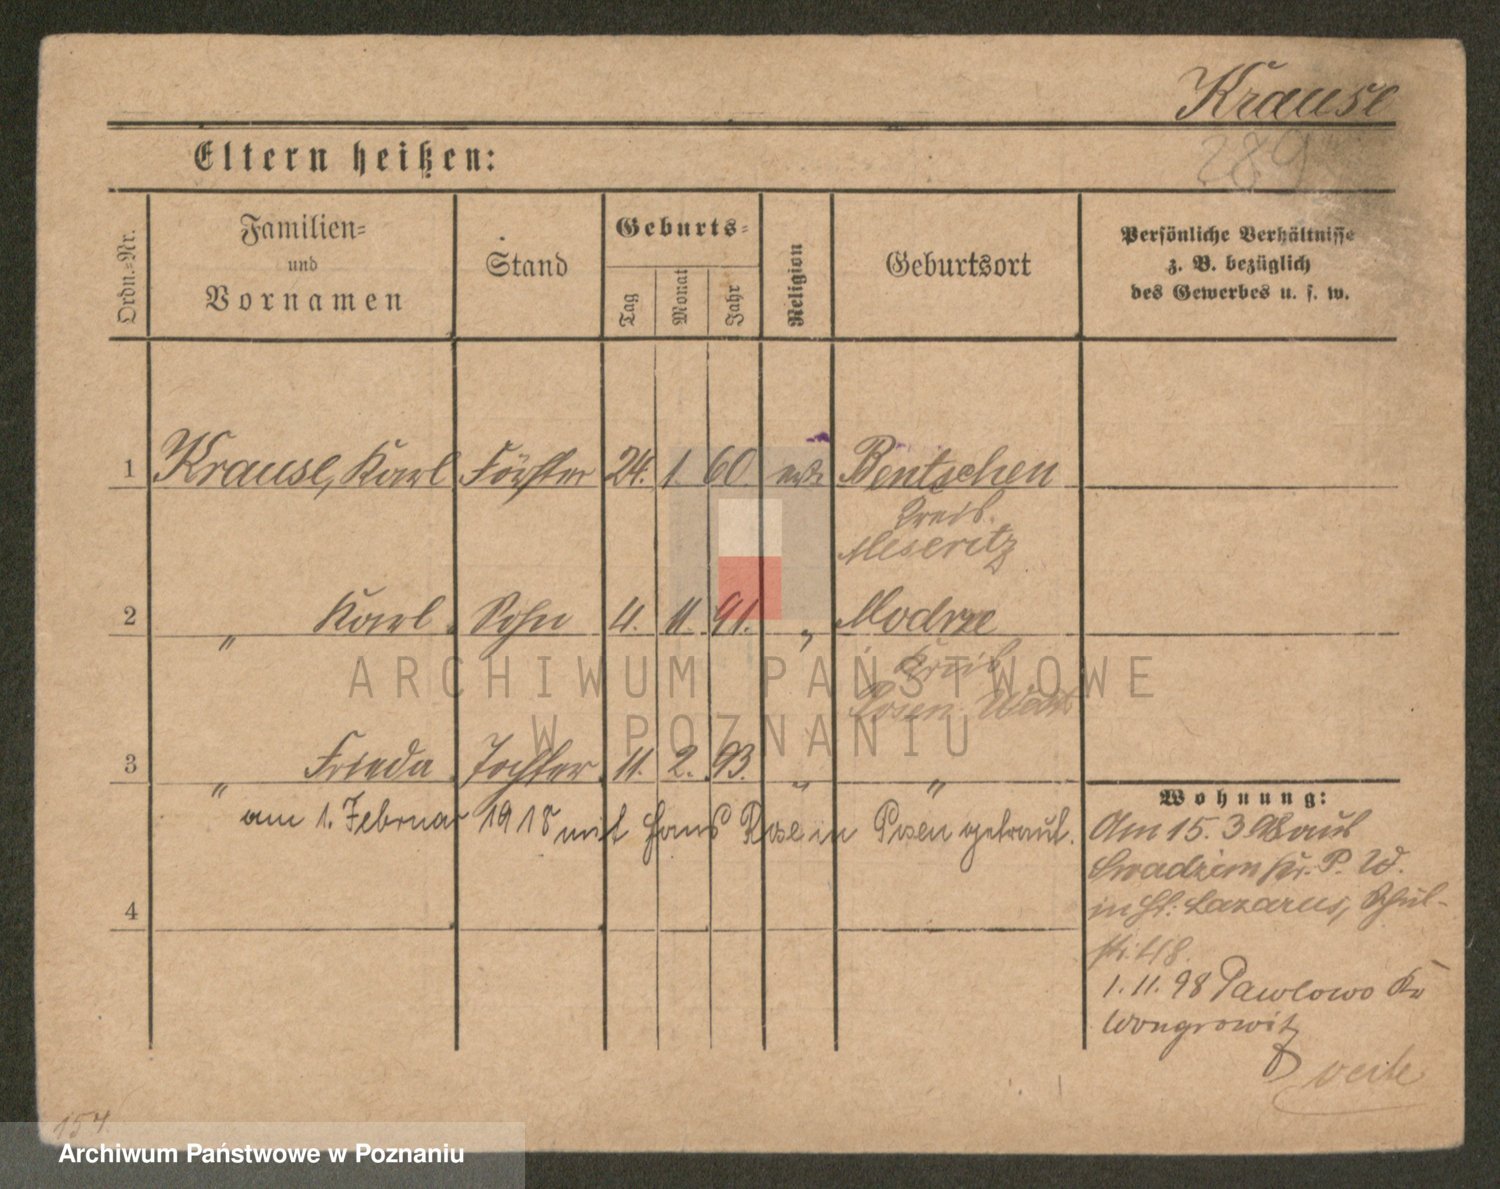 Krause
289
Eltern heißen:
Ordn.-Nr.
Familien-
und
Vornamen
Stand
Geburts-
Tag
Monat
Jahr
Religion
Geburtsort
Persönliche Verhältnisse
z. B. bezüglich
des Gewerbes u. s. w.
1 Krause, Karl Förster 24. 1. 60. ev. Bentschen
Kreis
Meseritz
2 " Karl Sohn 4. 11. 91. " Modrze
Kreis
Posen West
3 " Frieda Tochter 11. 2. 93. " "
am 1. Februar 1918 mit Hans Rose in Posen getraut.
4
Wohnung:
Am 15. 3 98 aus
Swadzim Kr. P. W.
in St. Lazarus, Schul-
str. 48.
1. 11. 98 Pawlowo Kr
Wongrowitz
154
ARCHIWUM PAŃSTWOWE
W POZNANIU
Archiwum Państwowe w Poznaniu